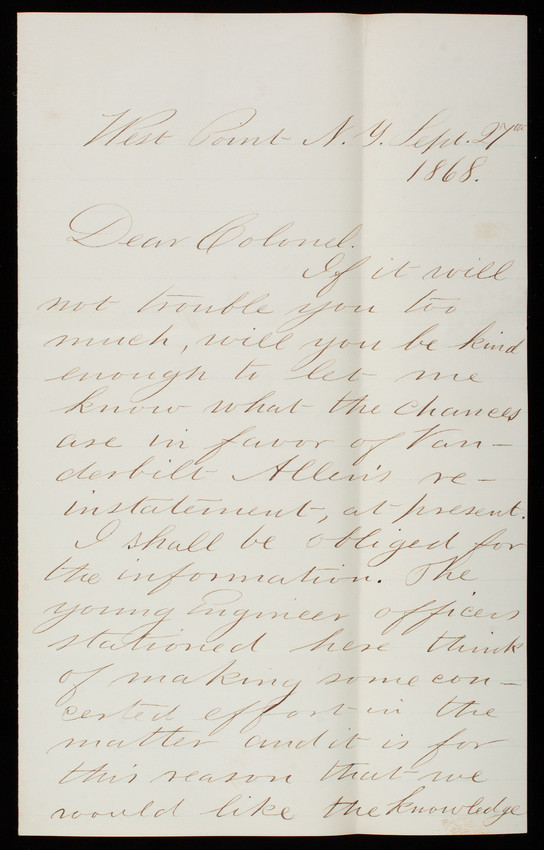 West Point N. Y. Sept. 27th
1868.
Dear Colonel.
If it will
not trouble you too
much, will you be kind
enough to let me
know what the chances
are in favor of Van-
derbilt Allen's re-
instatement, at present.
I shall be obliged for
the information. The
young Engineer officers
stationed here think
of making some con-
certed effort in the
matter and it is for
this reason that we
would like the knowledge